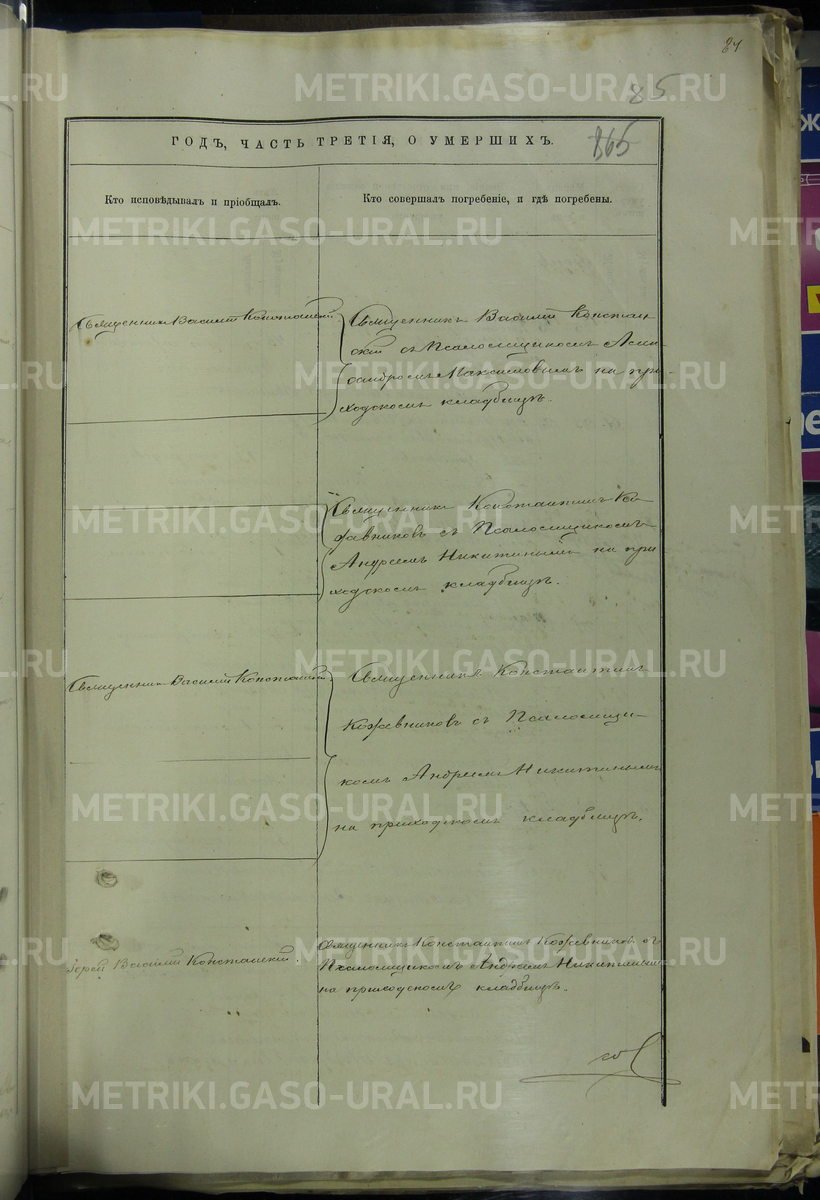 84
85
865
ГОДЪ, ЧАСТЬ ТРЕТІЯ, О УМЕРШИХЪ.
Кто исповѣдывалъ и пріобщалъ.
Кто совершалъ погребеніе, и гдѣ погребены.
Священникъ Василій
Священникъ Василій
съ Псаломщикомъ Алек-
сандромъ Максимовымъ на при-
ходскомъ кладбищѣ.
Священникъ Константинъ Ко-
жевниковъ съ Псаломщикомъ
Андреемъ Никитинымъ на при
ходскомъ кладбищѣ.
Священникъ Василій
Священникъ Константинъ
Кожевниковъ съ Псаломщи-
комъ Андреемъ Никитинымъ
на приходскомъ кладбищѣ.
Іерей Василій
Священникъ Константинъ Кожевниковъ съ
Псаломщикомъ Андреемъ Никитинымъ
на приходскомъ кладбищѣ.
METRIKI.GASO-URAL.RU